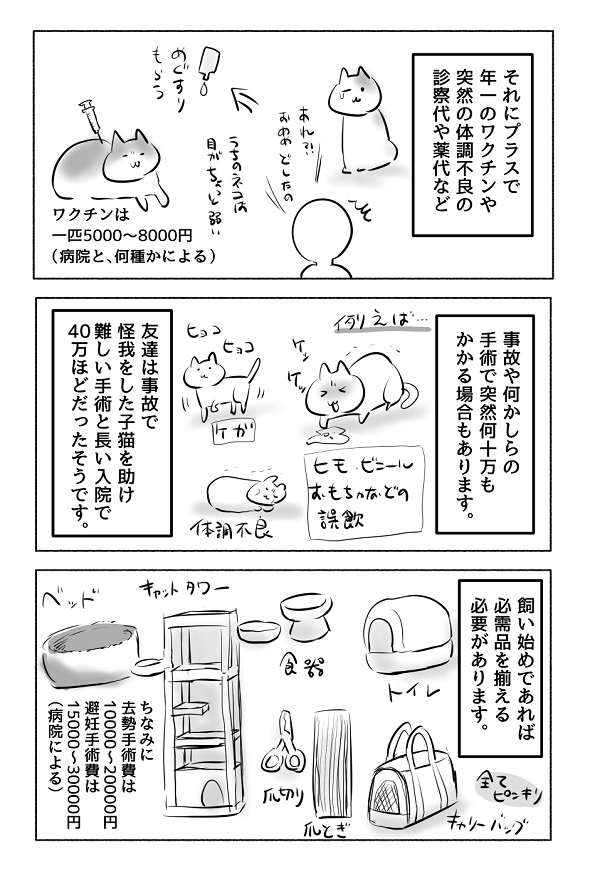 それにプラスで
年一のワクチンや
突然の体調不良の
診察代や薬代など
あれ?!
おめめどしたの
うちのネコは
目がちょっと弱い
めぐすり
もらう
ワクチンは
一匹5000～8000円
(病院と、何種かによる)
事故や何かしらの
手術で突然何十万も
かかる場合もあります。
例えば…
ケッ
ケッ
ヒモ・ビニール
おもちゃなどの
誤飲
ヒョコ
ヒョコ
ケガ
体調不良
友達は事故で
怪我をした子猫を助け
難しい手術と長い入院で
40万ほどだったそうです。
飼い始めであれば
必需品を揃える
必要があります。
トイレ
食器
キャットタワー
ベッド
全て
ピンキリ
キャリーバッグ
爪とぎ
爪切り
ちなみに
去勢手術費は
10000～20000円
避妊手術費は
15000～30000円
(病院による)